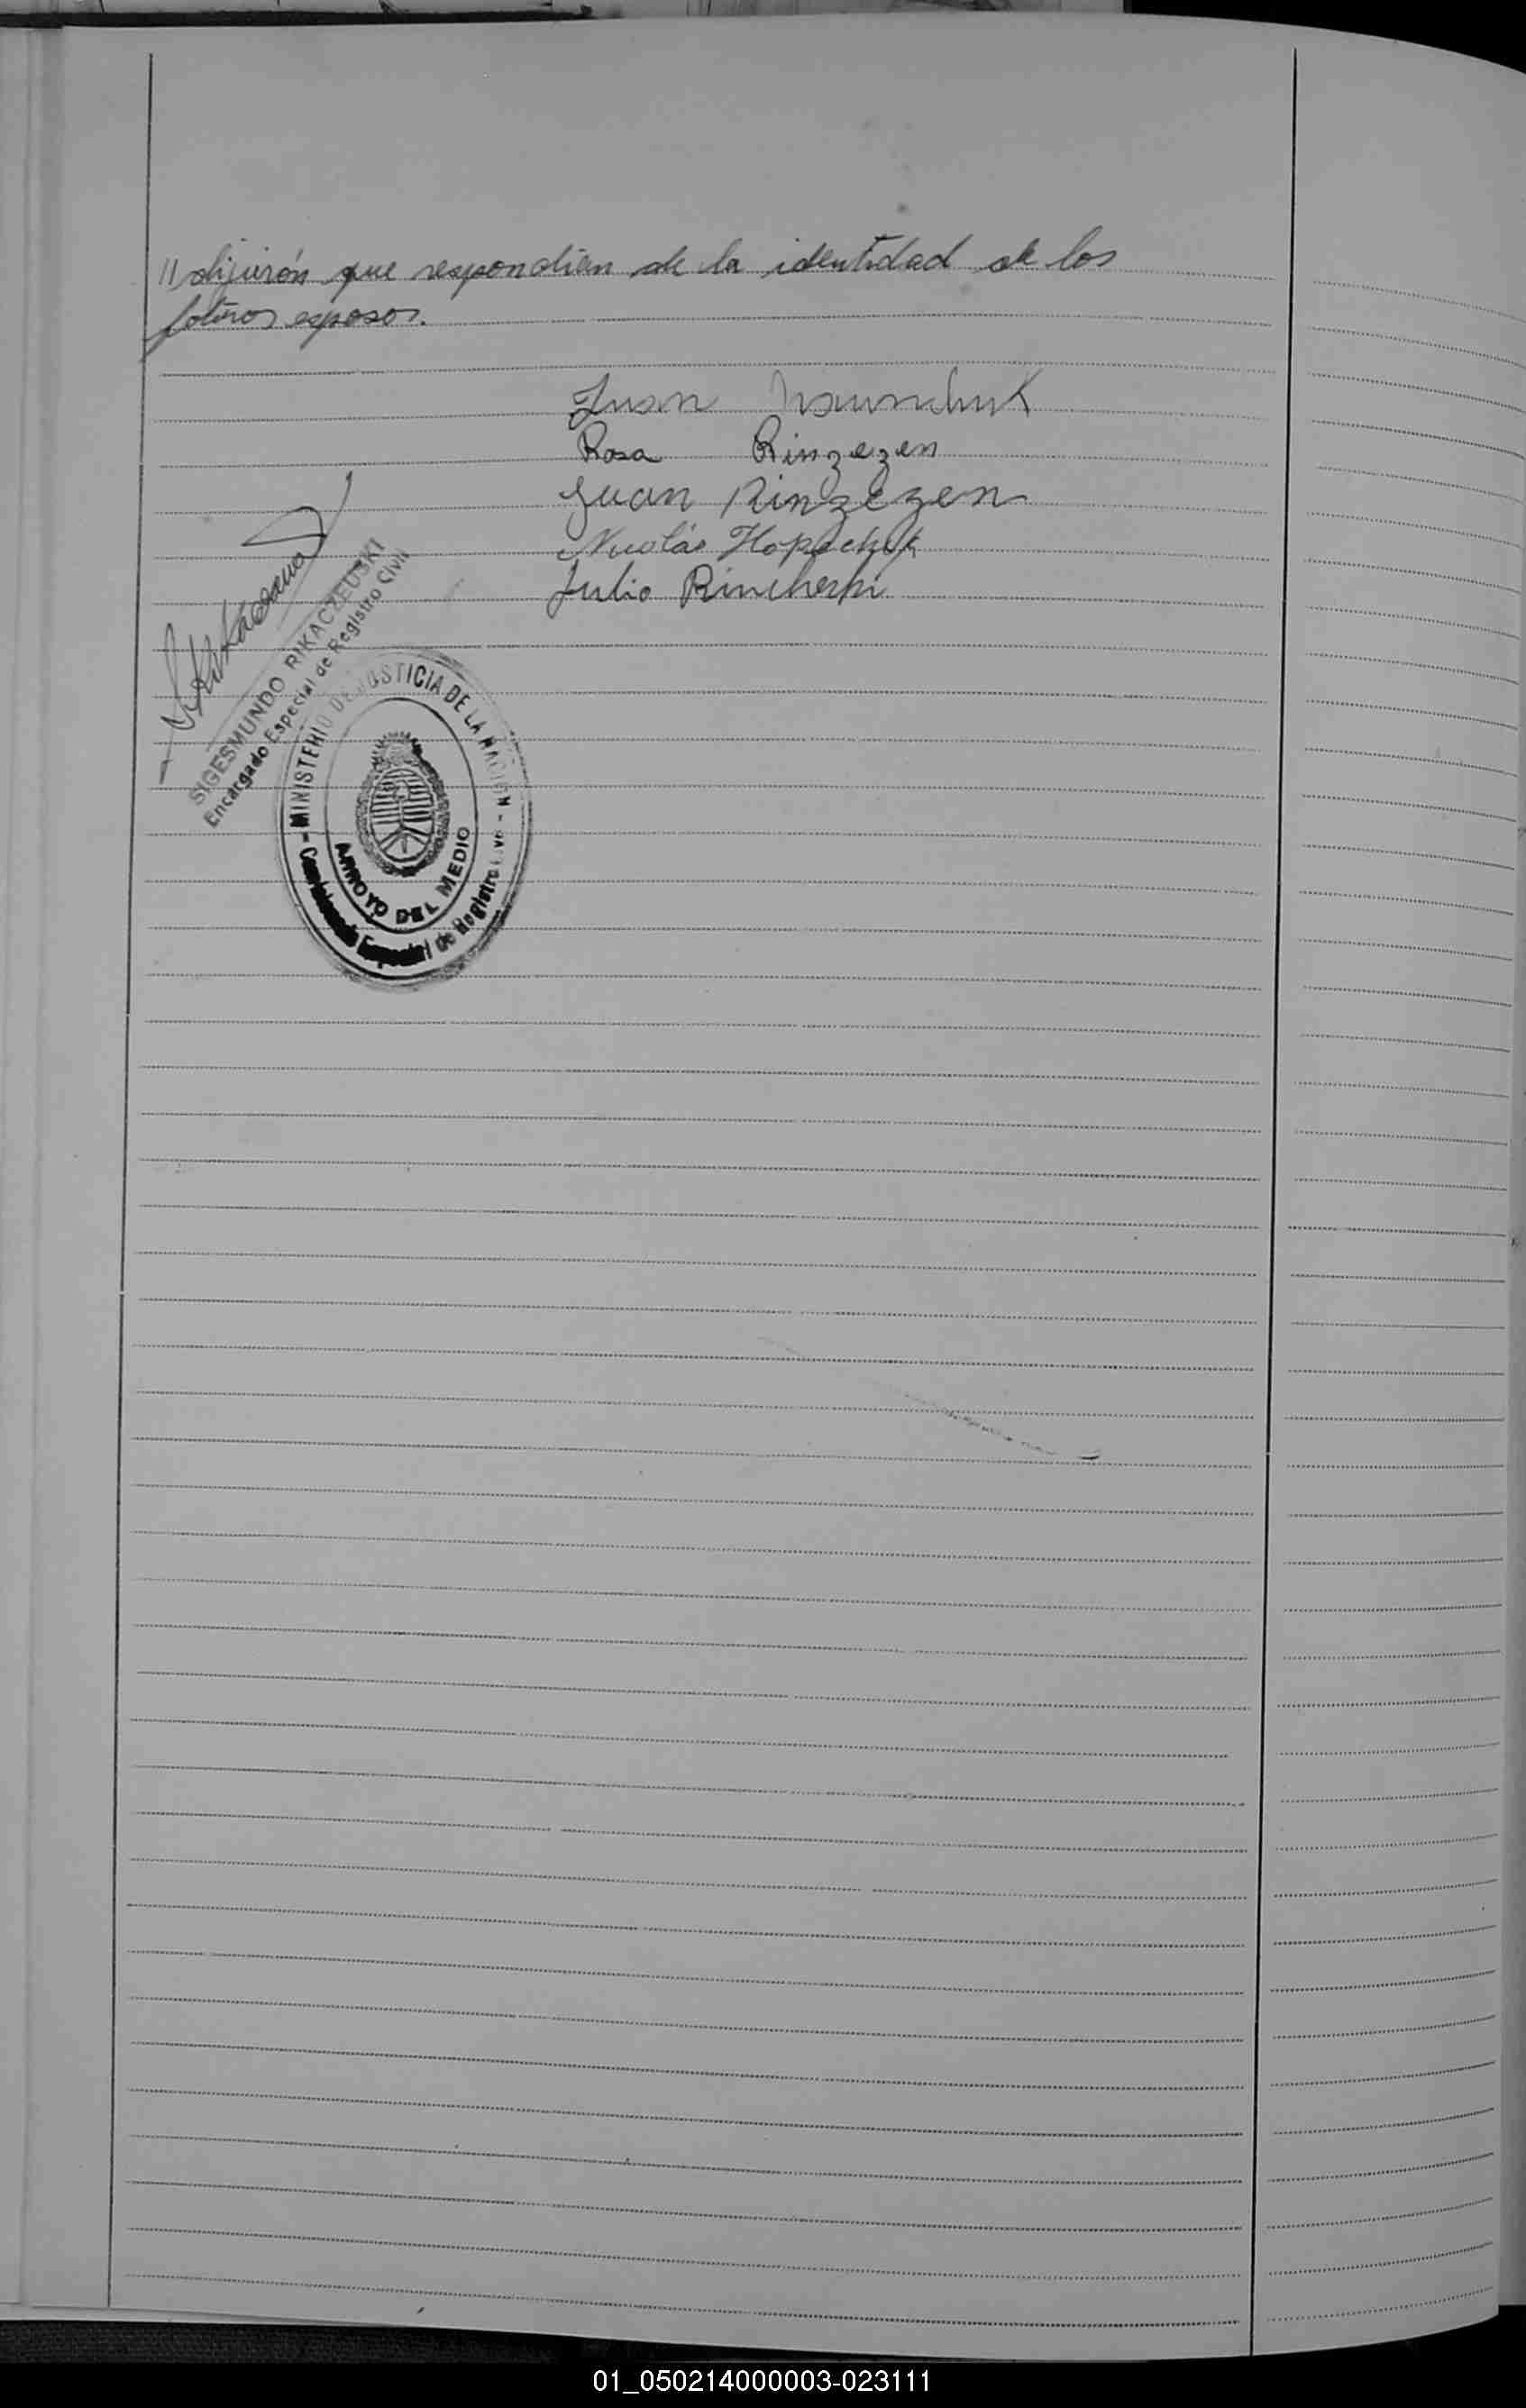 // dijerón que respondian de la identidad de los
foturos esposos.
Juan
Rosa Rinzezen
Juan Rinzezen
Nicolás Hopachuk
Julio Rincheski
SIGESMUNDO RIKACZEUSKI
Encargado Especial de Registro Civil
- MINISTERIO DE JUSTICIA DE LA NACION -
ARROYO DEL MEDIO
Especial de Registro Civil
01_050214000003-023111